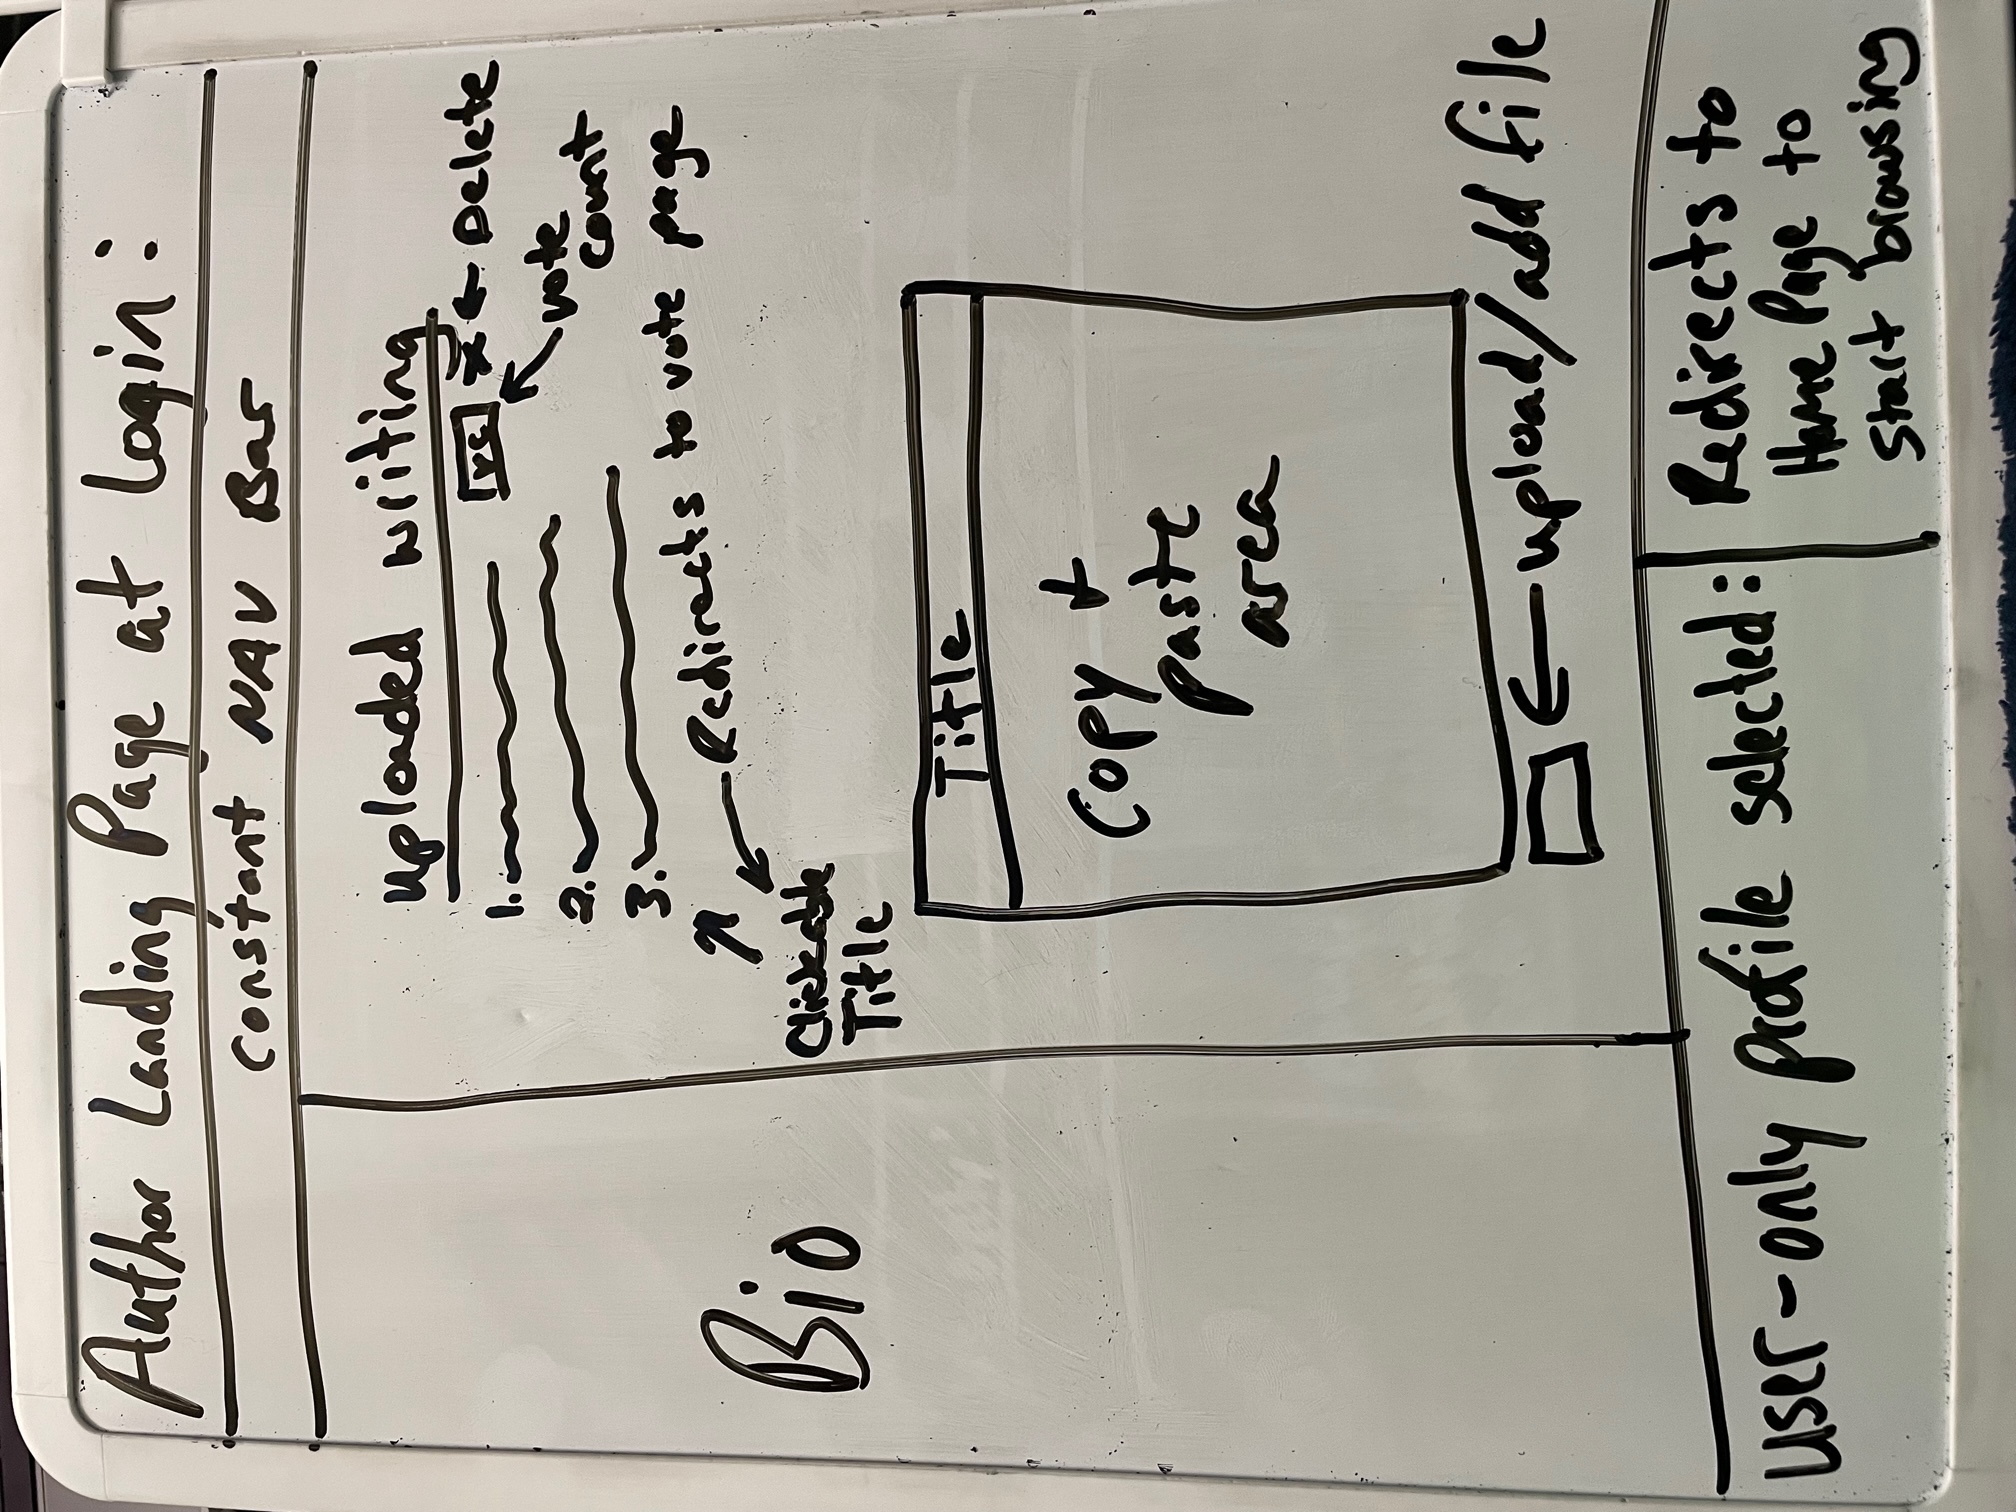 Author Landing Page at Login:
constant NAV Bar
uploaded writing
1.
VC
x
Delete
2.
vote
count
3.
Redirects to vote page
Clickable
Title
Bio
Title
Copy +
paste
area
upload/add file
user-only profile selected:
Redirects to
Home Page to
start browsing